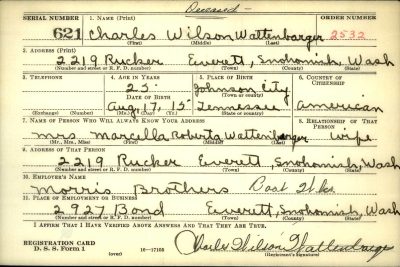 Deceased
SERIAL NUMBER 1. NAME (Print) ORDER NUMBER
621 Charles Wilson Wattenbarger 2532
(First) (Middle) (Last)
2. ADDRESS (Print)
2219 Rucker Everett, Snohomish, Wash
(Number and street or R. F. D. number) (Town) (County) (State)
3. TELEPHONE 4. AGE IN YEARS 5. PLACE OF BIRTH 6. COUNTRY OF CITIZENSHIP
25 Johnson City
DATE OF BIRTH (Town or county)
Aug. 17, 15 Tennessee American
(Exchange) (Number) (Mo.) (Day) (Yr.) (State or country)
7. NAME OF PERSON WHO WILL ALWAYS KNOW YOUR ADDRESS 8. RELATIONSHIP OF THAT PERSON
Mrs Marcella Roberta Wattenbarger Wife
(Mr., Mrs., Miss) (First) (Middle) (Last)
9. ADDRESS OF THAT PERSON
2219 Rucker Everett, Snohomish, Wash
(Number and street or R. F. D. number) (Town) (County) (State)
10. EMPLOYER'S NAME
Morris Brothers Boat
11. PLACE OF EMPLOYMENT OR BUSINESS
2927 Bond Everett, Snohomish, Wash
(Number and street or R. F. D. number) (Town) (County) (State)
I AFFIRM THAT I HAVE VERIFIED ABOVE ANSWERS AND THAT THEY ARE TRUE.
REGISTRATION CARD
D. S. S. Form 1 (over) 16—17105 Charles Wilson Wattenbarger
(Registrant's signature)